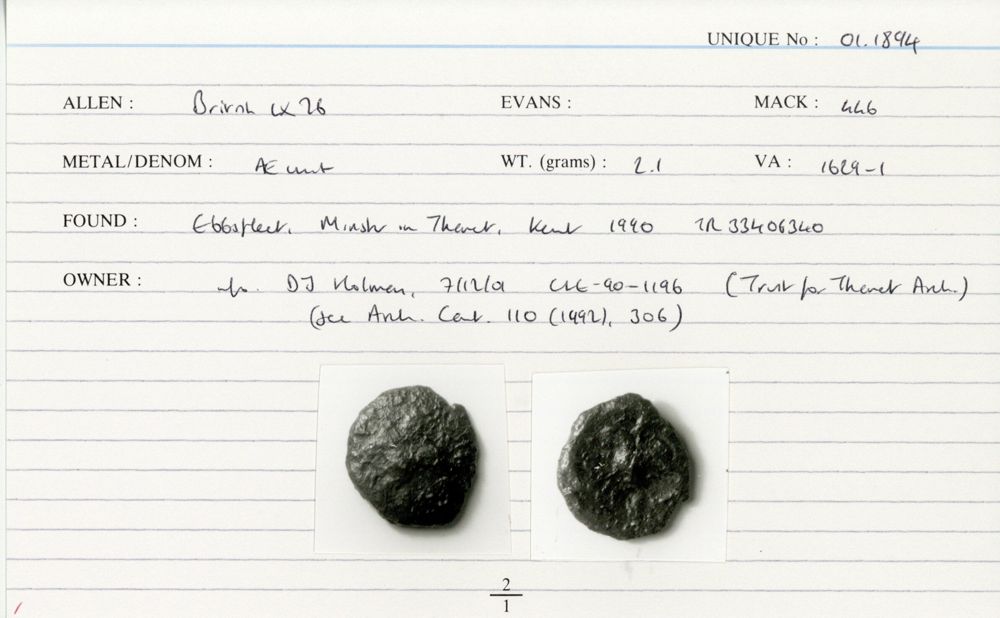 UNIQUE No : 01.1894
ALLEN : British LX 26 EVANS : MACK : 446
METAL/DENOM : AE unit WT. (grams) : 2.1 VA : 1629-1
FOUND : Ebbsfleet, Minster in Thanet, Kent 1990 TR 33406340
OWNER : info. DJ Holman, 7/12/01 CNE-90-1196 (Trust for Thanet Arch.)
(see Arch. Cant. 110 (1992), 306)
2
1